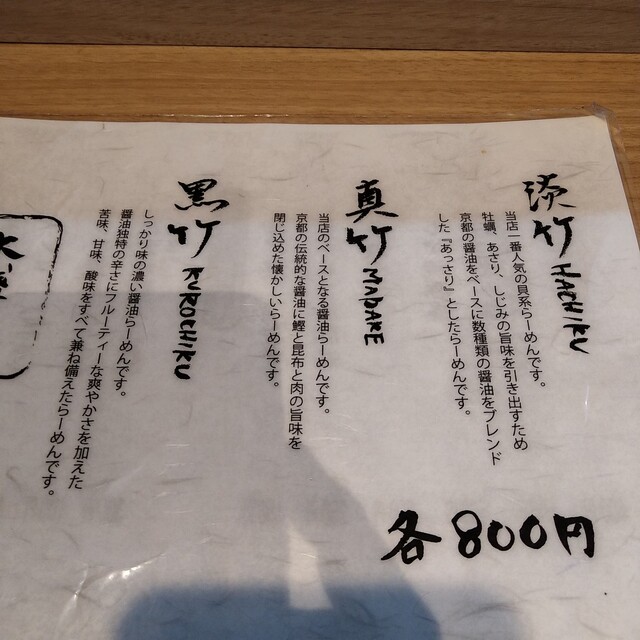 淡竹 HACHIKU
当店一番人気の貝系らーめんです。
牡蠣、あさり、しじみの旨味を引き出すため
京都の醤油をベースに数種類の醤油をブレンド
した『あっさり』としたらーめんです。
真竹 MADAKE
当店のベースとなる醤油らーめんです。
京都の伝統的な醤油に鰹と昆布と肉の旨味を
閉じ込めた懐かしいらーめんです。
黒竹 KUROCHIKU
しっかり味の濃い醤油らーめんです。
醤油独特の辛さにフルーティーな爽やかさを加えた
苦味、甘味、酸味をすべて兼ね備えたらーめんです。
各800円